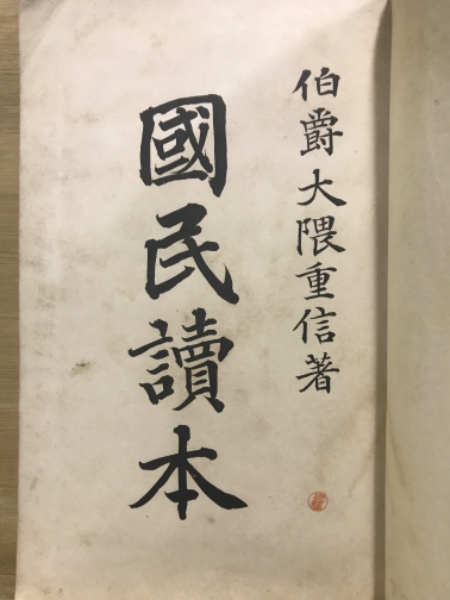 伯爵 大隈重信著
國民讀本